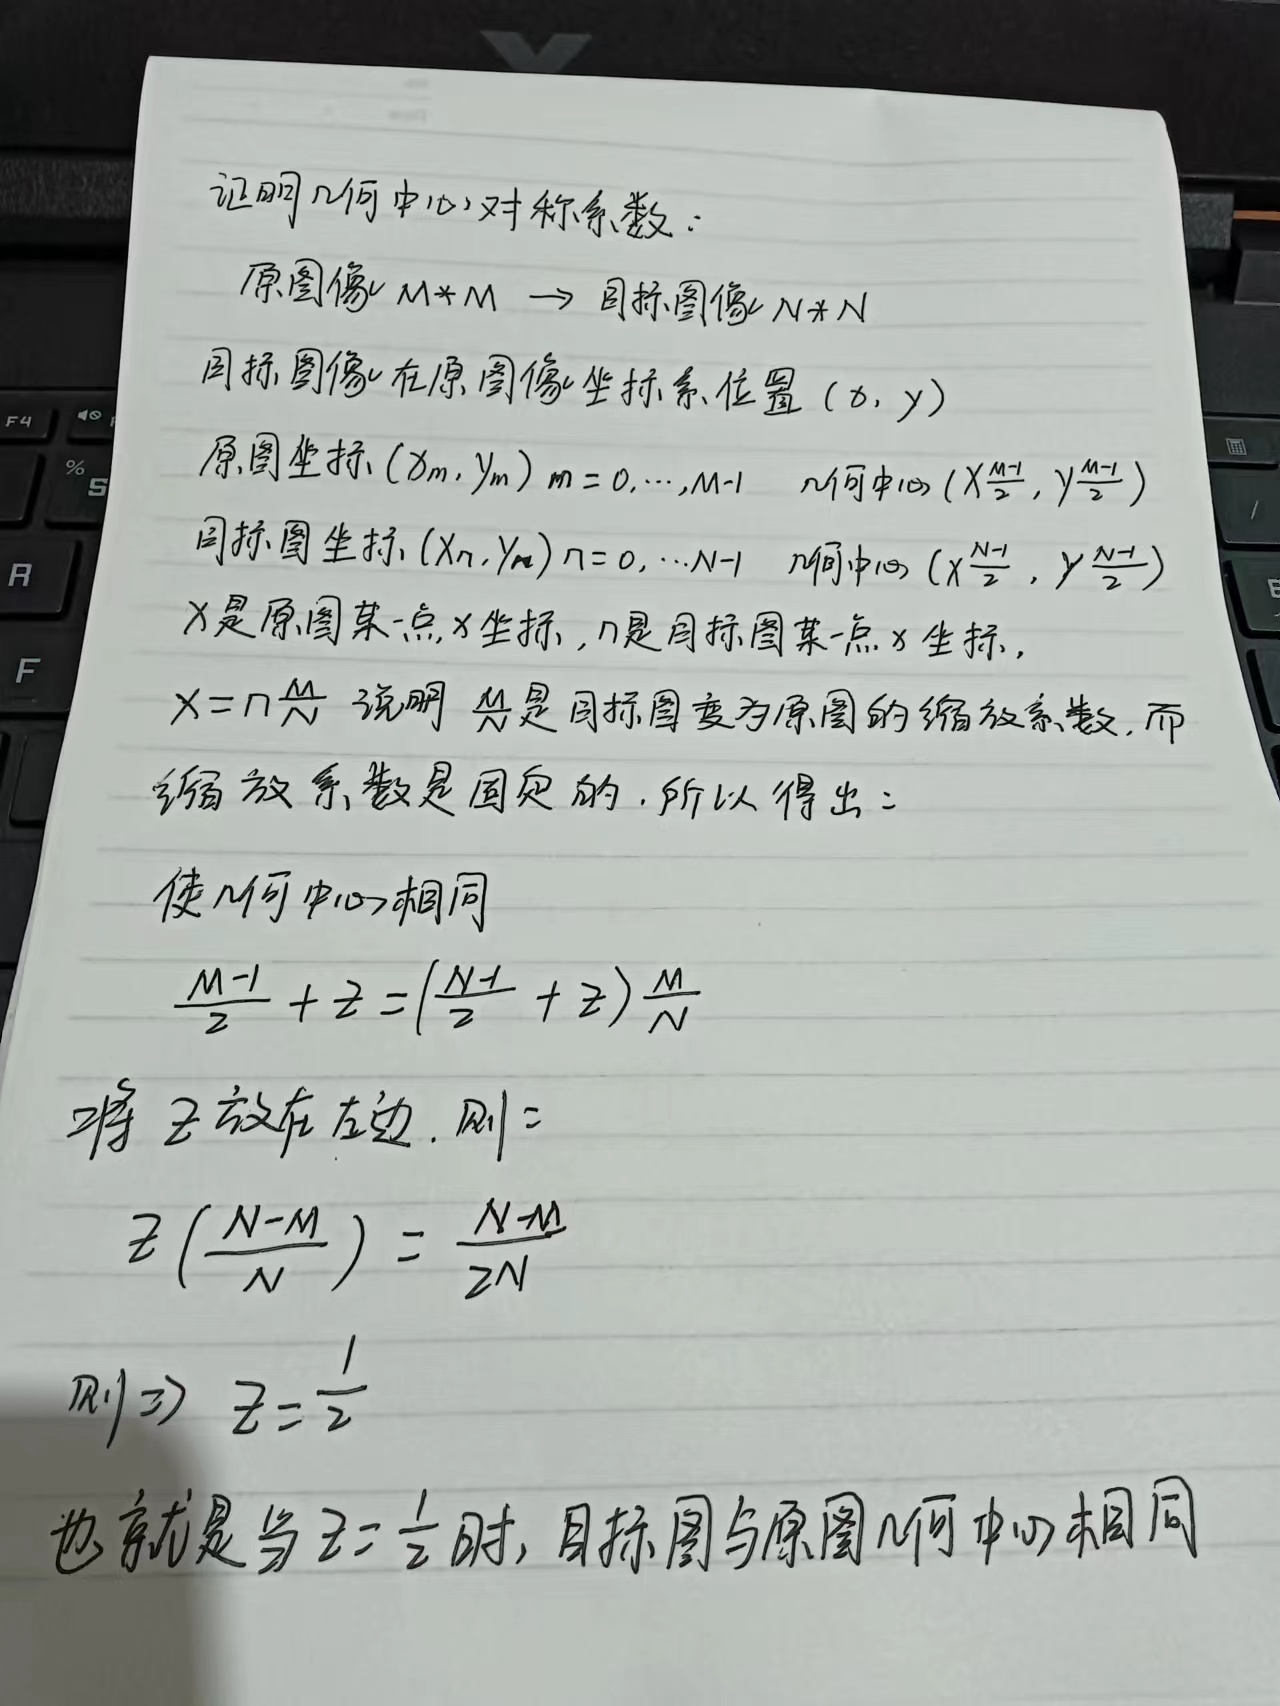 证明几何中心对称系数:
原图像 M*M → 目标图像 N*N
目标图像在原图像坐标系位置 (x, y)
原图坐标 (xm, ym) m=0,…,M-1 几何中心 (x M-1/2, y M-1/2)
目标图坐标 (xn, yn) n=0,…N-1 几何中心 (x N-1/2, y N-1/2)
x是原图某一点x坐标, n是目标图某一点x坐标,
x=n M/N 说明 M/N 是目标图变为原图的缩放系数, 而
缩放系数是固定的. 所以得出:
使几何中心相同
M-1/2 + Z = (N-1/2 + Z) M/N
将 Z 放在左边. 则:
Z (N-M/N) = N-M/2N
则⇒ Z = 1/2
也就是当 Z = 1/2 时, 目标图与原图几何中心相同
F4
%
5
R
F
/